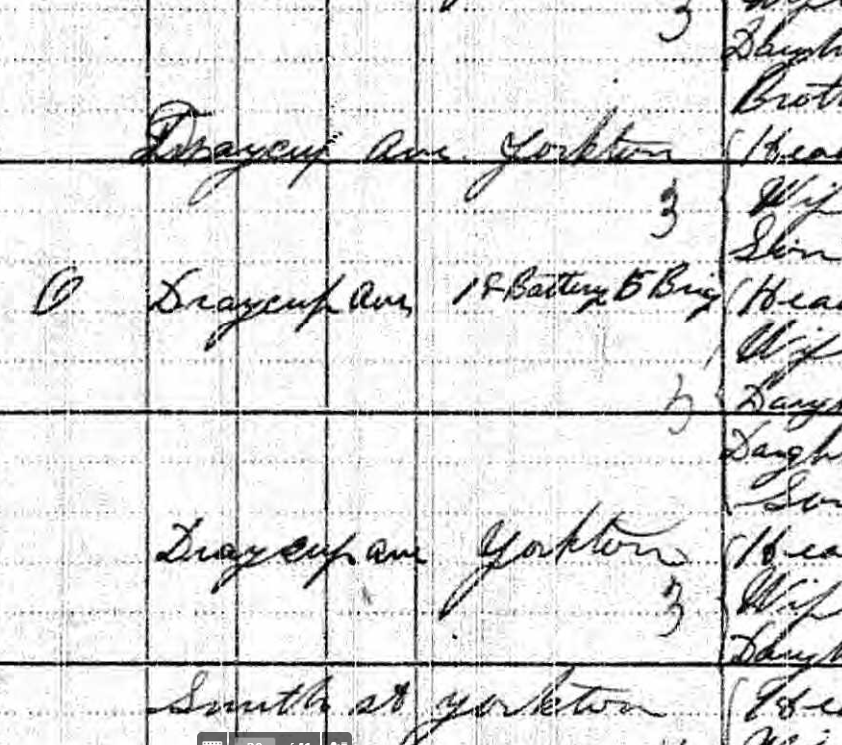 3 Wif
Daugh
Broth
Draycup Ave Yorkton Head
Wif
3
Son
O Draycup Ave 18 Battery 15 Brig Head
Wif
5 Daugh
Daugh
Son
Draycup ave Yorkton Head
3 Wif
Daugh
Smith st yorkton Head